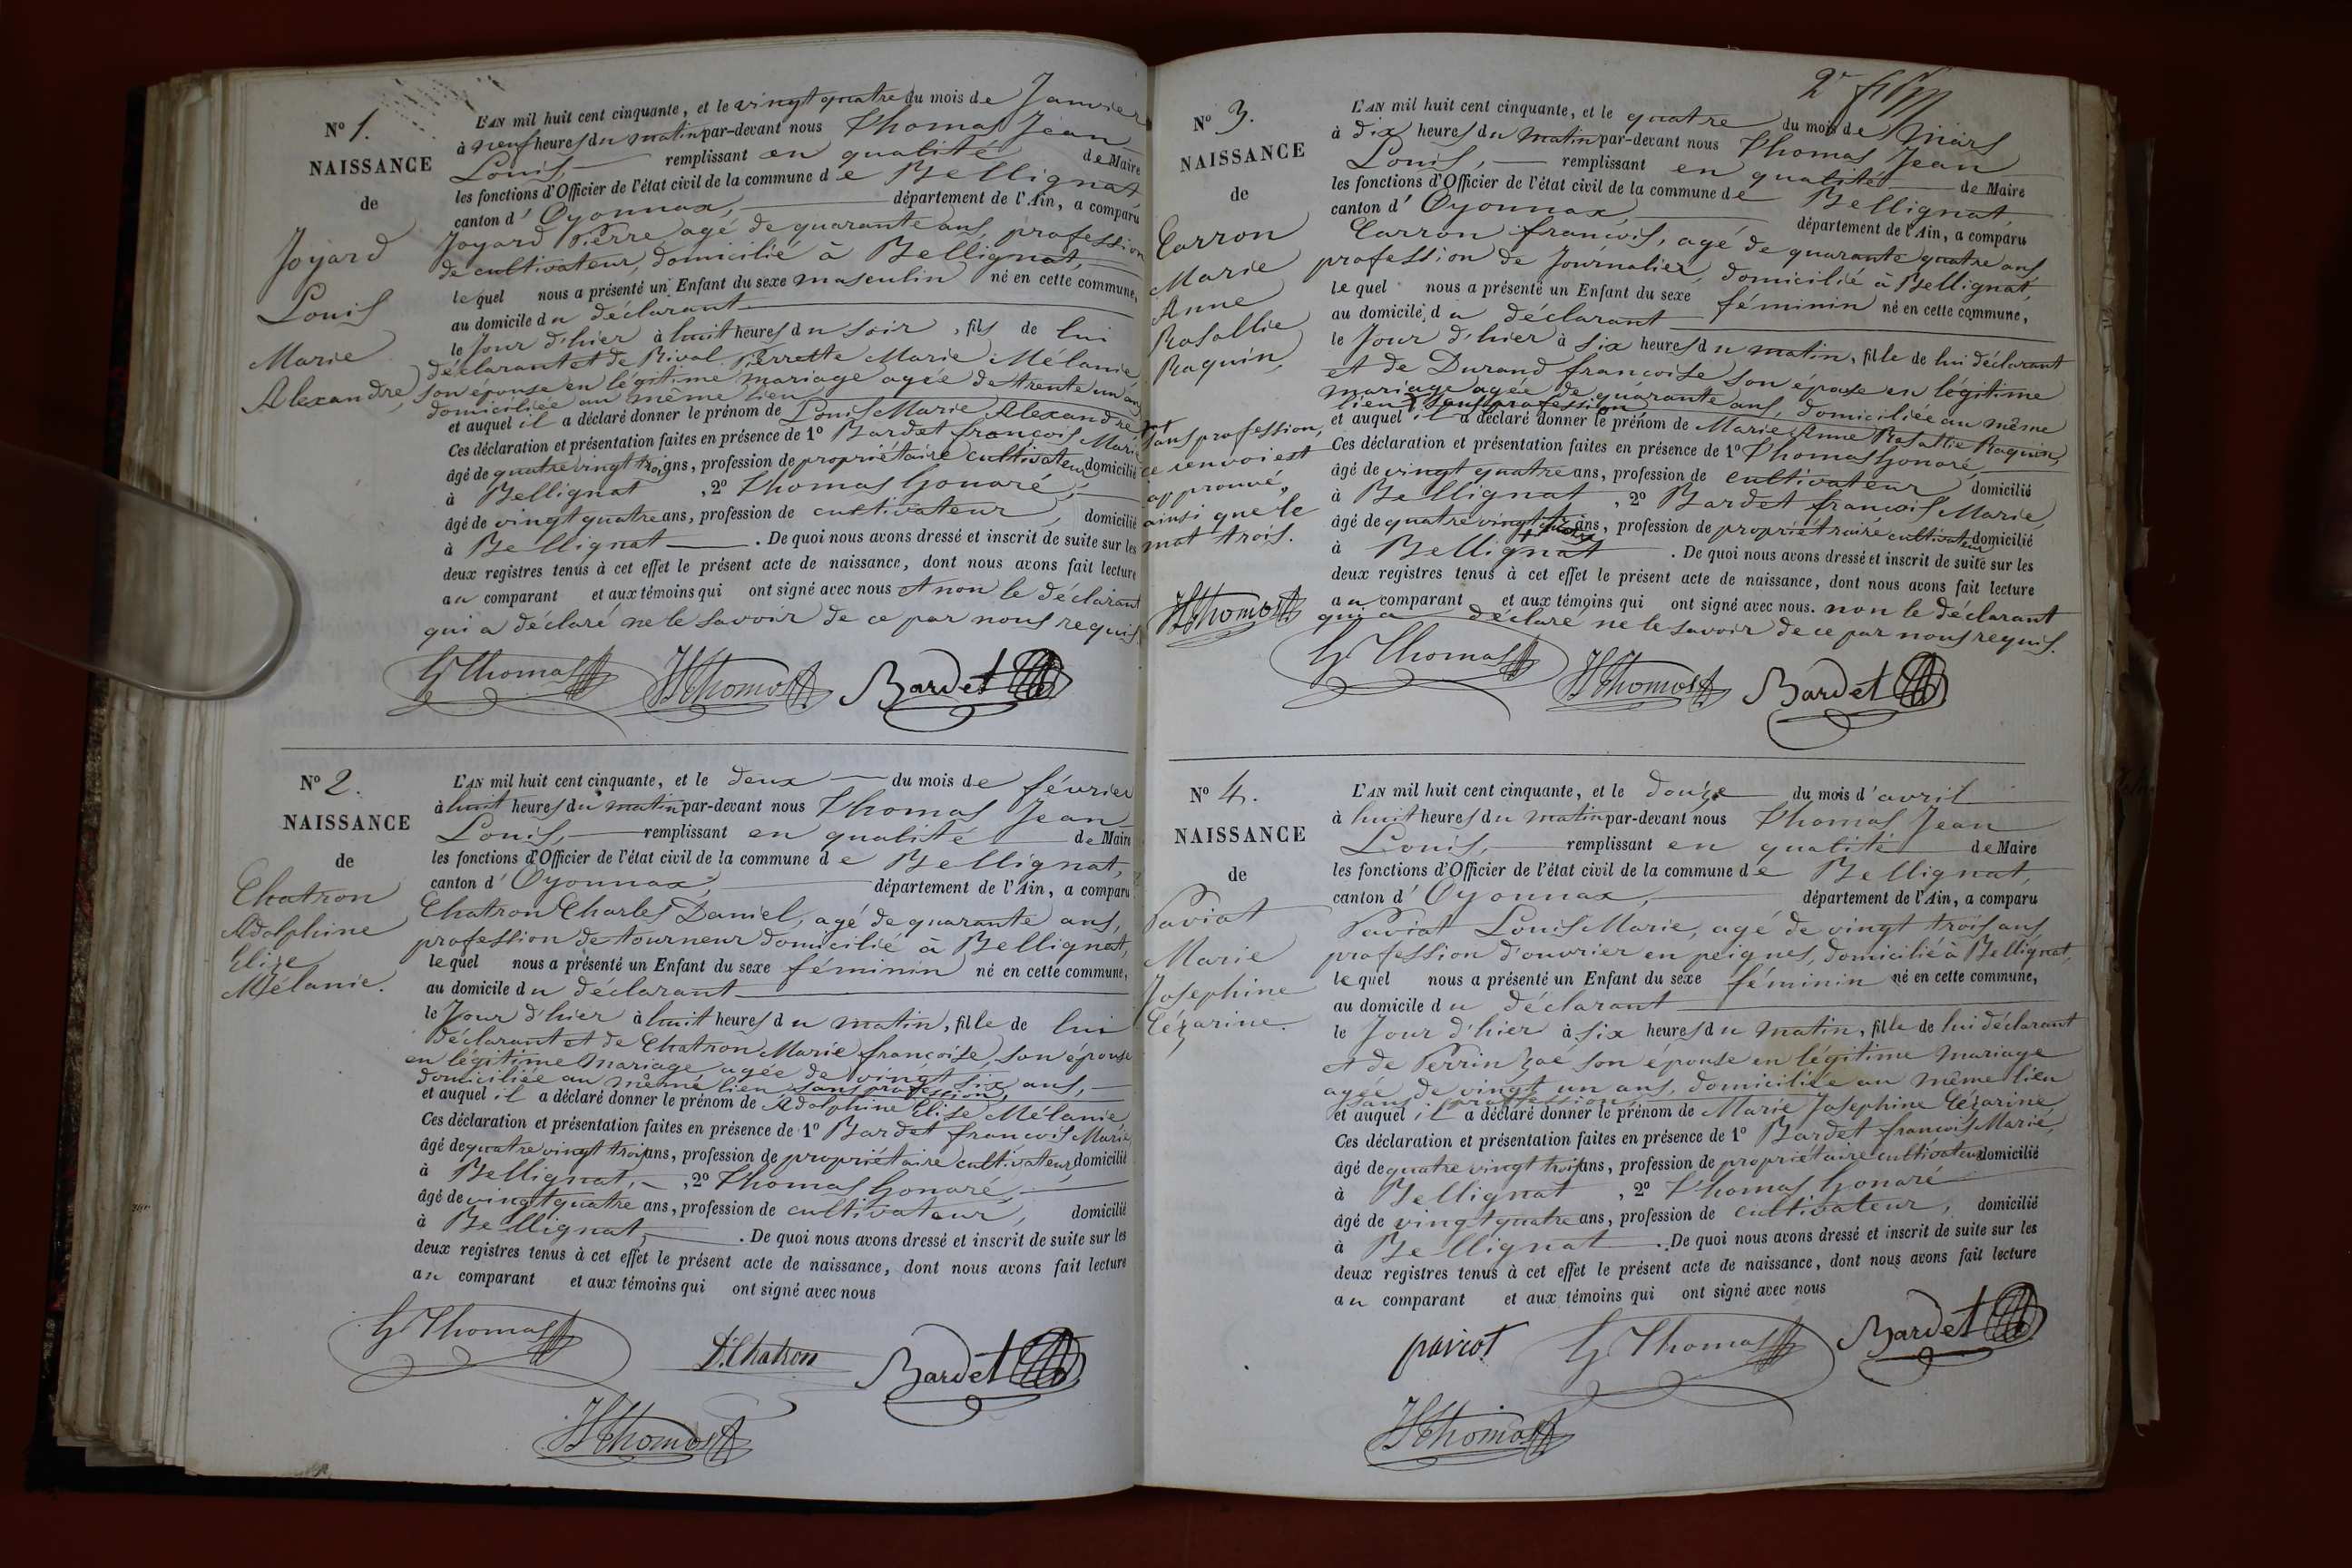 N° 1.
NAISSANCE
de
Joyard
Louis
Marie
Alexandre,
L'AN mil huit cent cinquante, et le vingt quatre du mois de Janvier
à neuf heures du matin par-devant nous Thomas Jean
Louis, remplissant en qualité de Maire
les fonctions d'Officier de l'état civil de la commune de Bellignat,
canton d'Oyonnax, département de l'Ain, a comparu
Joyard Pierre, agé de quarante ans, profession
de cultivateur, domicilié à Bellignat,
lequel nous a présenté un Enfant du sexe masculin né en cette commune,
au domicile du déclarant
le Jour d'hier à huit heures du soir, fils de lui
déclarant et de Rival Pierrette Marie Mélanie
son épouse en légitime mariage agée de trente un ans
domiciliée au même lieu
et auquel il a déclaré donner le prénom de Louis Marie Alexandre
Ces déclaration et présentation faites en présence de 1° Bardet francois Marie
âgé de quatre vingt trois ans, profession de propriétaire cultivateur domicilié
à Bellignat, 2° Thomas Honoré,
âgé de vingt quatre ans, profession de cultivateur, domicilié
à Bellignat. De quoi nous avons dressé et inscrit de suite sur les
deux registres tenus à cet effet le présent acte de naissance, dont nous avons fait lecture
au comparant et aux témoins qui ont signé avec nous et non le déclarant
qui a déclaré ne le savoir de ce par nous requis
H Thomas JL Thomas Bardet
N° 2.
NAISSANCE
de
Chatron
Adolphine
Elise
Mélanie.
L'AN mil huit cent cinquante, et le deux du mois de février
à huit heures du matin par-devant nous Thomas Jean
Louis, remplissant en qualité de Maire
les fonctions d'Officier de l'état civil de la commune de Bellignat,
canton d'Oyonnax, département de l'Ain, a comparu
Chatron Charles Daniel, agé de quarante ans,
profession de tourneur domicilié à Bellignat,
lequel nous a présenté un Enfant du sexe féminin né en cette commune,
au domicile du déclarant
le Jour d'hier à huit heures du matin, fille de lui
déclarant et de Chatron Marie francoise, son épouse
en légitime mariage agée de vingt six ans,
domiciliée au même lieu sans profession,
et auquel il a déclaré donner le prénom de Adolphine Elise Mélanie
Ces déclaration et présentation faites en présence de 1° Bardet francois Marie
âgé de quatre vingt trois ans, profession de propriétaire cultivateur, domicilié
à Bellignat, 2° Thomas Honoré,
âgé de vingt quatre ans, profession de cultivateur, domicilié
à Bellignat, . De quoi nous avons dressé et inscrit de suite sur les
deux registres tenus à cet effet le présent acte de naissance, dont nous avons fait lecture
au comparant et aux témoins qui ont signé avec nous
H Thomas D. Chatron Bardet
JL Thomas
N° 3.
NAISSANCE
de
Carron
Marie
Anne
Rosallie
Raquin,
sans profession,
ce renvoi est
approuvé,
ainsi que le
mot trois.
JL Thomas
L'AN mil huit cent cinquante, et le quatre du mois de Mars
à dix heures du matin par-devant nous Thomas Jean
Louis, remplissant en qualité de Maire
les fonctions d'Officier de l'état civil de la commune de Bellignat,
canton d'Oyonnax, département de l'Ain, a comparu
Carron francois, agé de quarante quatre ans,
profession de Journalier, domicilié à Bellignat,
lequel nous a présenté un Enfant du sexe féminin né en cette commune,
au domicile du déclarant
le Jour d'hier à six heures du matin, fille de lui déclarant
et de Durand francoise son épouse en légitime
mariage agée de quarante ans, domiciliée au même
lieu sans profession
et auquel il a déclaré donner le prénom de Marie Anne Rosallie Raquin,
Ces déclaration et présentation faites en présence de 1° Thomas Honoré,
âgé de vingt quatre ans, profession de cultivateur domicilié
à Bellignat, 2° Bardet francois Marie,
âgé de quatre vingt trois ans, profession de propriétraire cultivateur domicilié
à Bellignat. De quoi nous avons dressé et inscrit de suite sur les
deux registres tenus à cet effet le présent acte de naissance, dont nous avons fait lecture
au comparant et aux témoins qui ont signé avec nous. non le déclarant
qui a déclaré ne le savoir de ce par nous requis.
H Thomas JL Thomas Bardet
N° 4.
NAISSANCE
de
Paviot
Marie
Josephine
Cézarine.
L'AN mil huit cent cinquante, et le douze du mois d'avril
à huit heures du matin par-devant nous Thomas Jean
Louis, remplissant en qualité de Maire
les fonctions d'Officier de l'état civil de la commune de Bellignat,
canton d'Oyonnax, département de l'Ain, a comparu
Paviot Louis Marie, agé de vingt trois ans,
profession d'ouvrier en peignes, domicilié à Bellignat,
lequel nous a présenté un Enfant du sexe féminin né en cette commune,
au domicile du déclarant
le Jour d'hier à six heures du matin, fille de lui déclarant
et de Perrin Zoé son épouse en légitime mariage
agée de vingt un ans, domiciliée au même lieu
sans profession,
et auquel il a déclaré donner le prénom de Marie Josephine Cézarine
Ces déclaration et présentation faites en présence de 1° Bardet francois Marie,
âgé de quatre vingt trois ans, profession de propriétaire cultivateur domicilié
à Bellignat, 2° Thomas Honoré
âgé de vingt quatre ans, profession de cultivateur, domicilié
à Bellignat. De quoi nous avons dressé et inscrit de suite sur les
deux registres tenus à cet effet le présent acte de naissance, dont nous avons fait lecture
au comparant et aux témoins qui ont signé avec nous
paviot H Thomas Bardet
JL Thomas